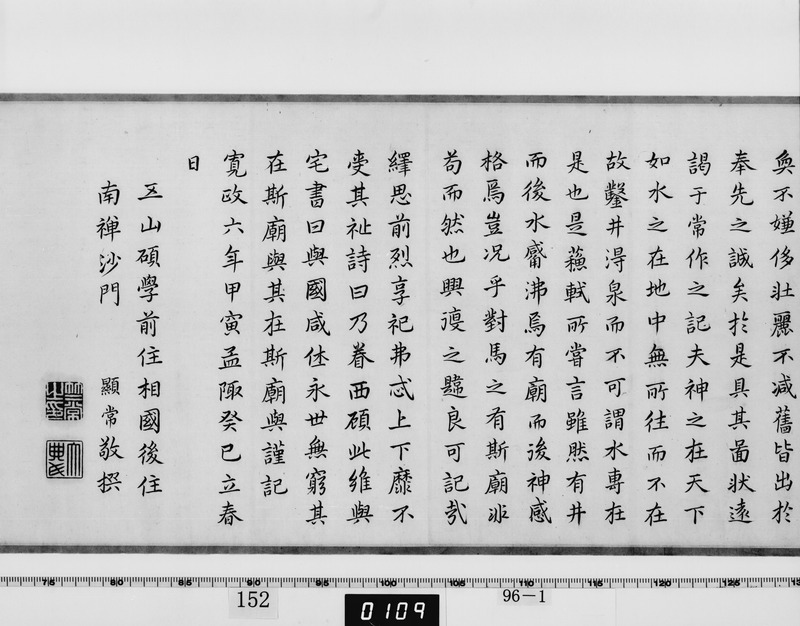 奐不嫌侈壯麗不減舊皆出於
奉先之誠矣於是具其啚狀遠
謁于常作之記夫神之在天下
如水之在地中無所往而不在
故鑿井淂泉而不可謂水專在
是也是蘓軾所嘗言雖然有井
而後水觱沸焉有廟而後神感
格焉豈况乎對馬之有斯廟非
苟而然也興復之韙良可記哉
繹思前烈享祀弗忒上下靡不
受其祉詩曰乃眷西碩此維與
宅書曰與國咸休永世無窮其
在斯廟與其在斯廟與謹記
寛政六年甲寅孟陬癸巳立春
日
五山碩學前住相國後住
南禅沙門 顯常敬撰
75 80 85 90 95 100 105 110 115 120 125 13
152
0109
96-1